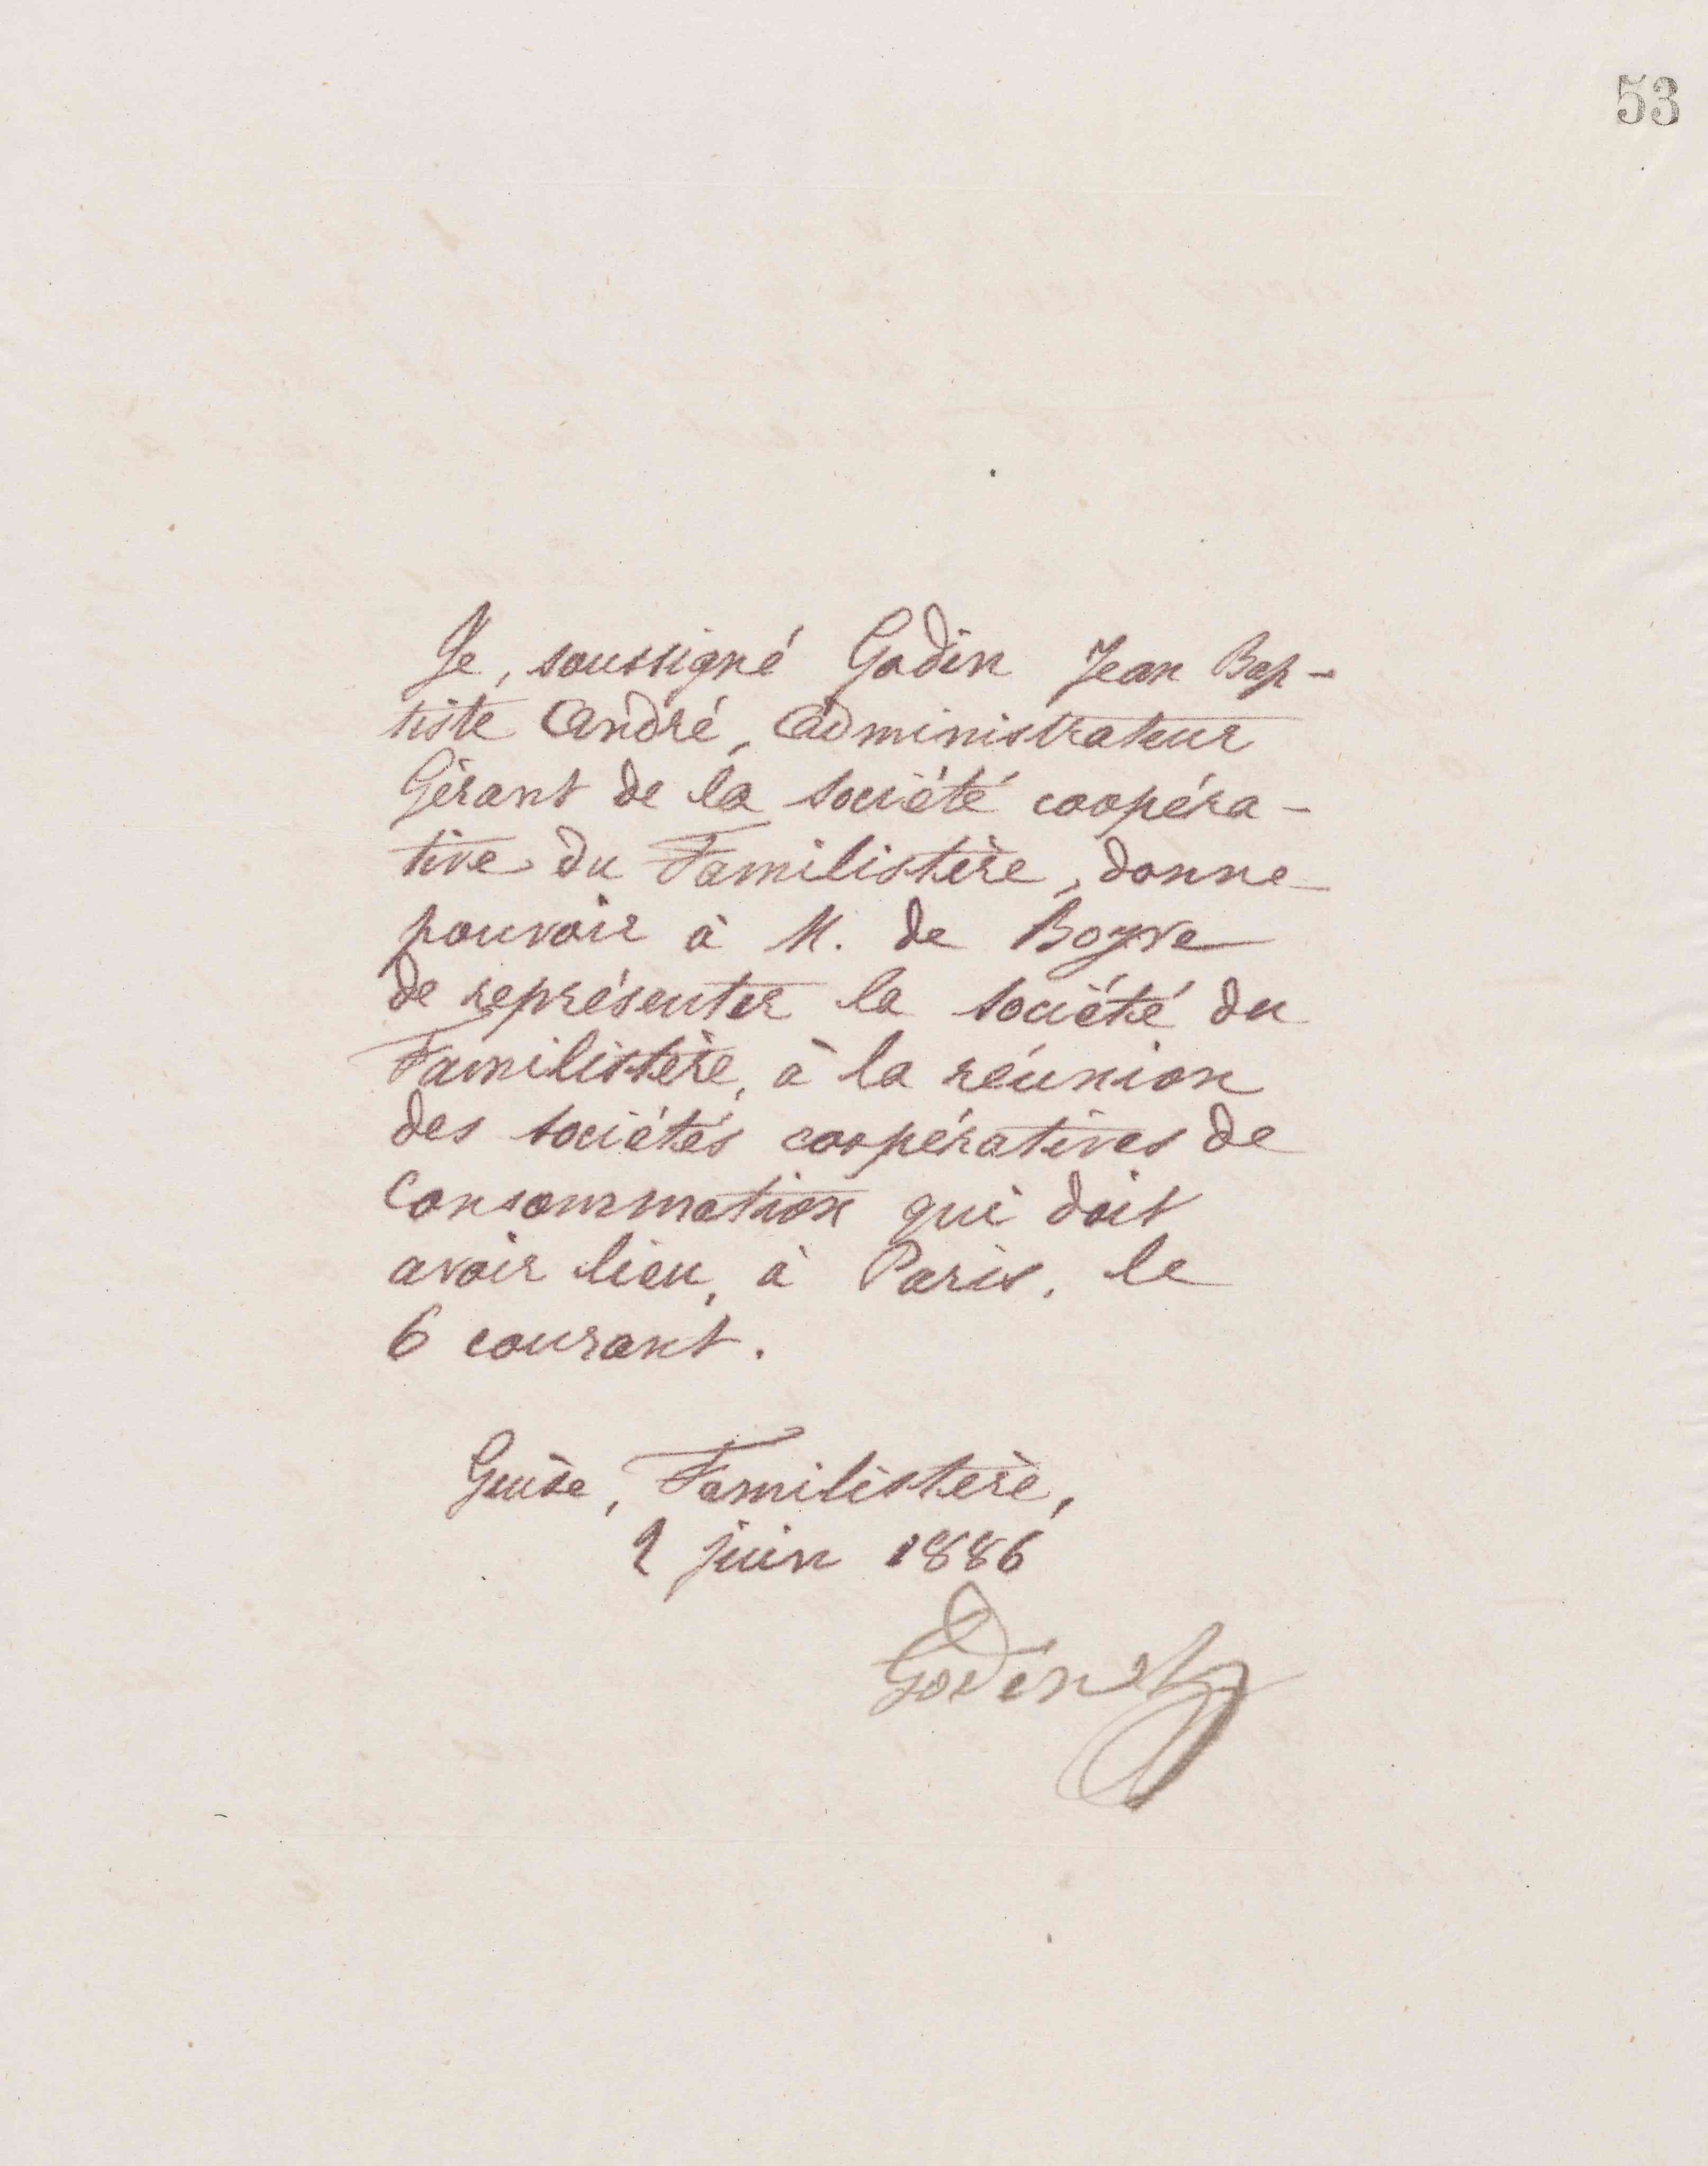 53
Je, soussigné Godin Jean Bap-
tiste André, Administrateur
Gérant de la société coopéra-
tive du Familistère, donne
pouvoir à M. de Boyve
de représenter la société du
Familistère, à la réunion
des sociétés coopératives de
Consommation qui doit
avoir lieu, à Paris, le
6 courant.
Guise, Familistère,
2 juin 1886
Godin